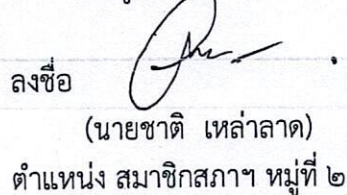 ลงชื่อ
(นายชาติ เหล่าลาด)
ตำแหน่ง สมาชิกสภาฯ หมู่ที่ ๒